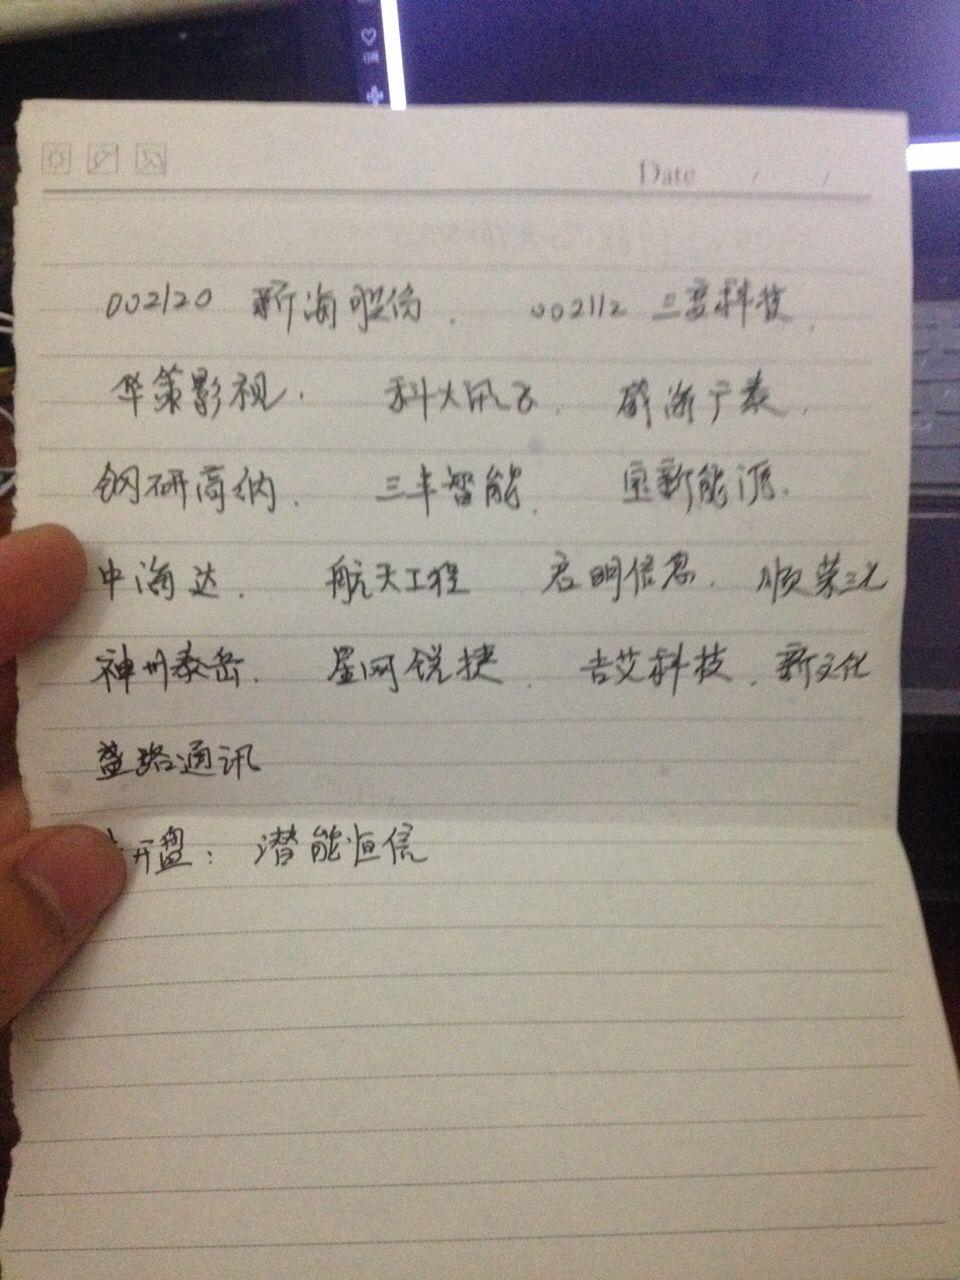 Date / /
002120 新海股份. 002112 三变科技.
华策影视. 科大讯飞. 威海广泰.
钢研高纳. 三丰智能. 宝新能源.
中海达. 航天工程 启明信息. 顺荣三七
神州泰岳. 星网锐捷. 吉艾科技. 新文化
盛路通讯
开盘: 潜能恒信